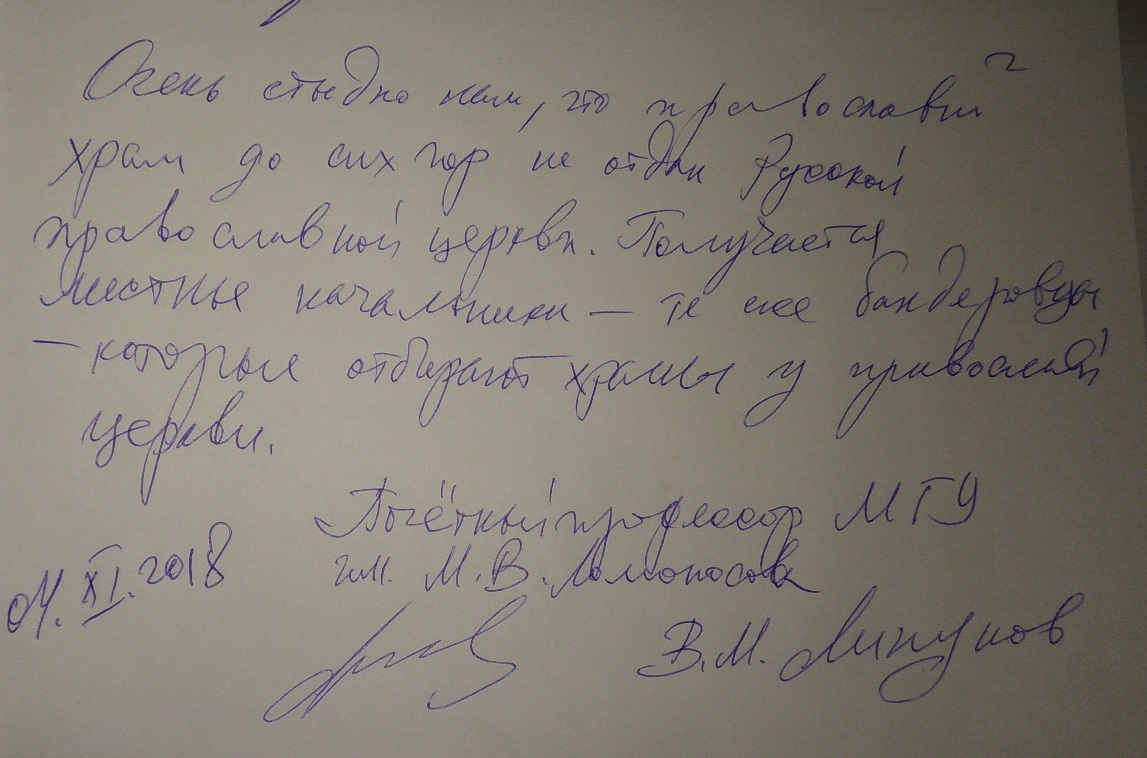 Очень стыдно нам, что православный
храм до сих пор не отдан Русской
православной церкви. Получается
местные начальники — те же бандеровцы
— которые отбирают храмы у православной
церкви.
Почётный профессор МГУ
им. М.В. Ломоносова
04.XI.2018
В.М. Липунов